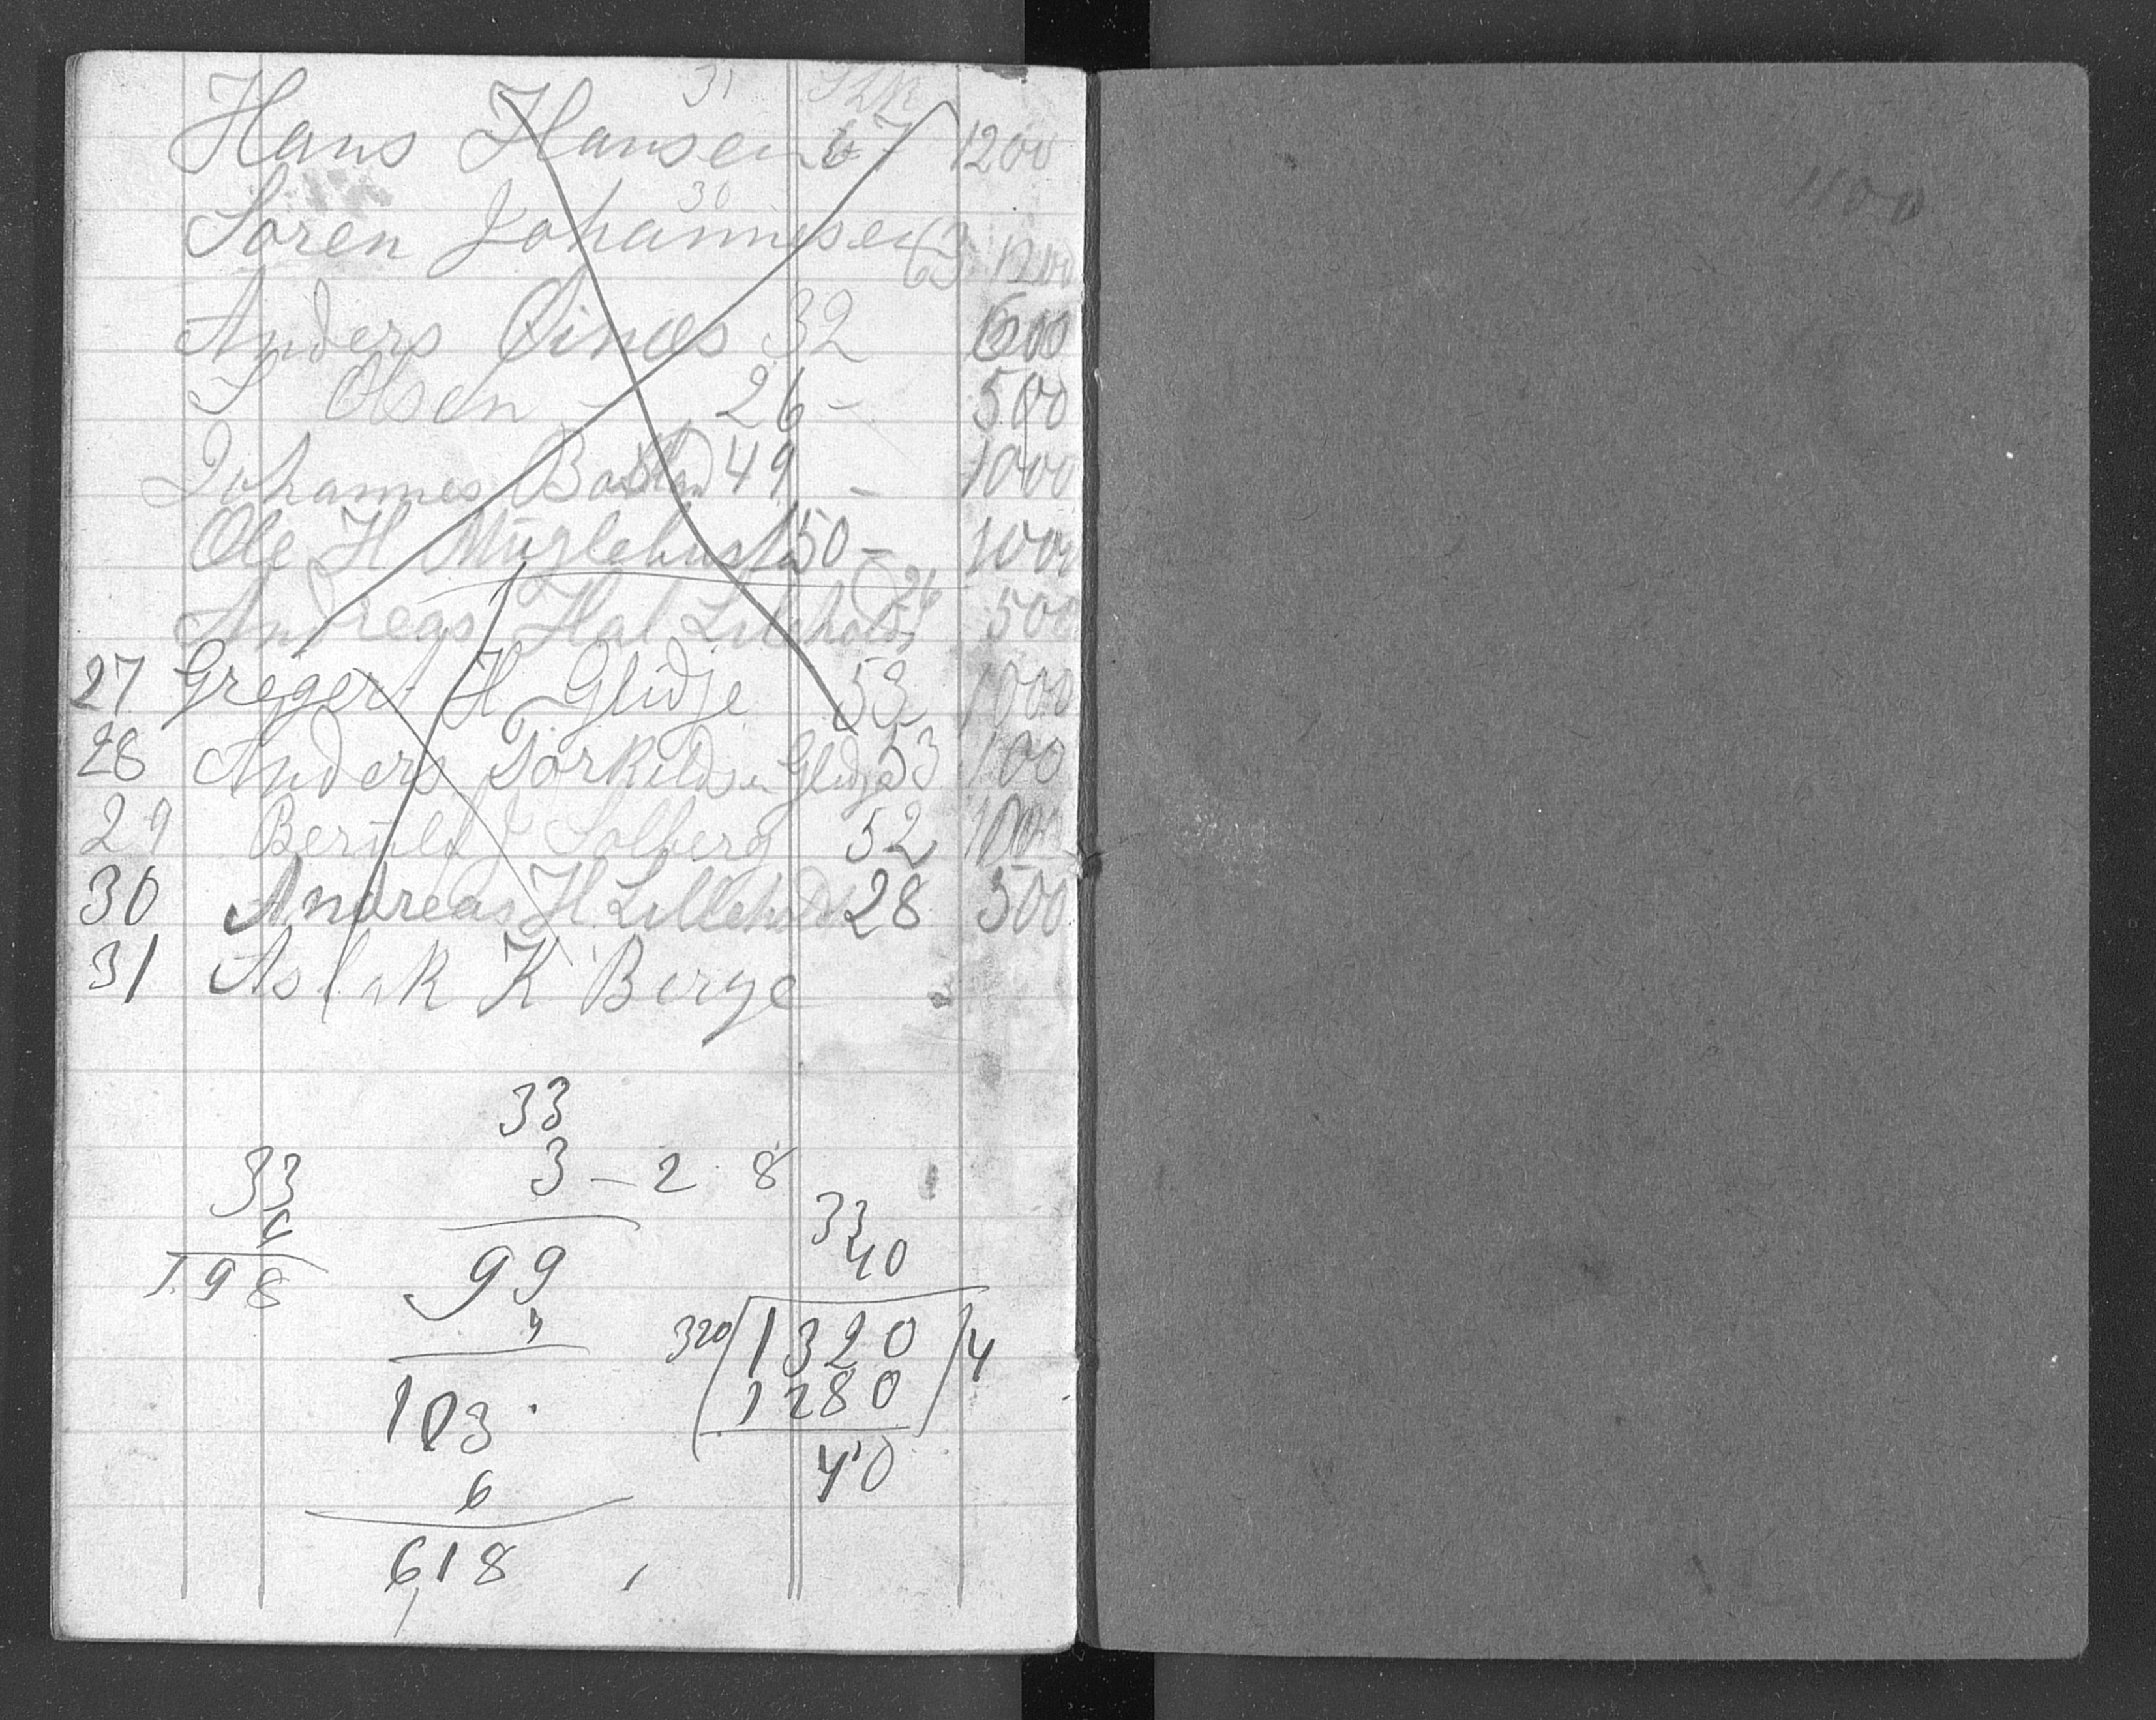 31
Hans Hansen 67 1200
30
Sören Johannesen 63 1200
Anders Öinæs 32 600
S Olsen - 26 - 500
Johannes 49 - 1000
Ole H Muglebust 50 - 1000
Andreas Hal Lileholdt 500
27 Gregert H Glidje 53 1000
28 Anders Torkildsen Glidje 53 100
29 Bertild J Solberg 52 1000
30 Andreas H. Lilleholdt 28 500
31 Aslak K Berge
33
3 - 2 8
33
6
198
99
4
103
6
618
33
40
320 1320 4
1280
40
1100